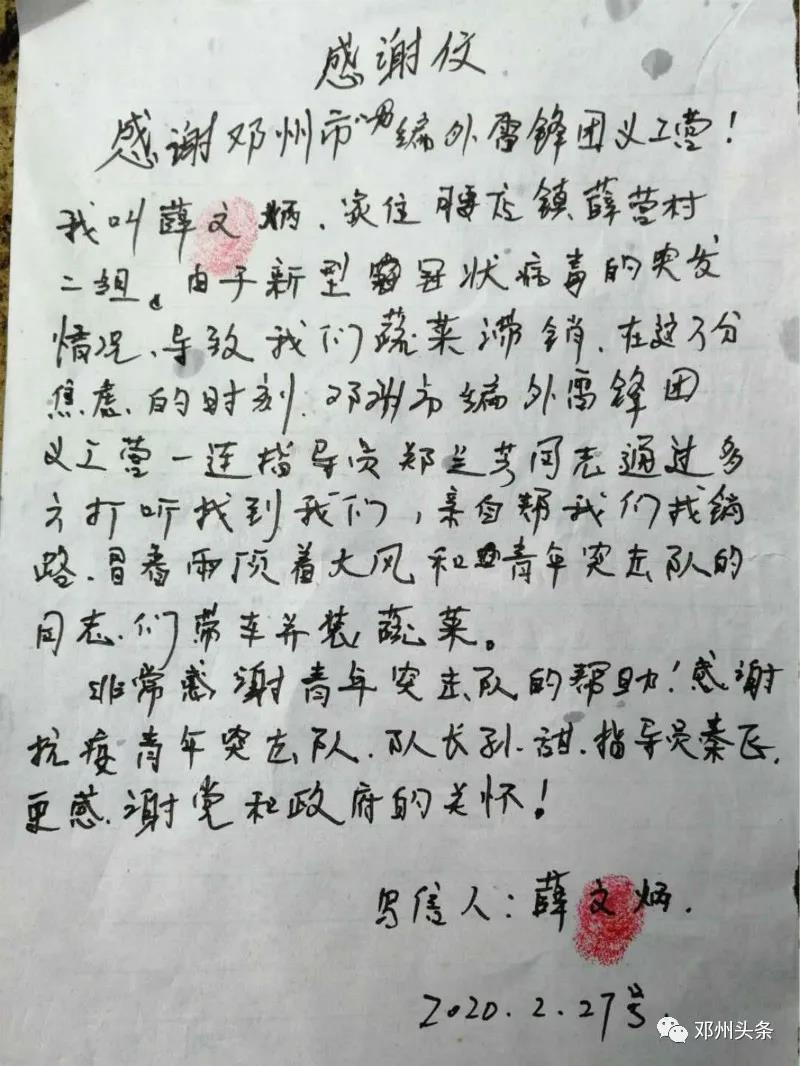 感谢信
感谢邓州市编外雷锋团义工营！
我叫薛文炳、家住腰店镇薛营村
二组。由于新型冠状病毒的突发
情况、导致我们蔬菜滞销、在这万分
焦虑的时刻、邓州市编外雷锋团
义工营一连指导员郑兰芳同志通过多
方打听找到我们，亲自帮我们找销
路、冒着雨顶着大风和青年突击队的
同志们带车并装蔬菜。
非常感谢青年突击队的帮助！感谢
抗疫青年突击队、队长孙甜、指导员秦正、
更感谢党和政府的关怀！
写信人：薛文炳.
2020.2.27号
邓州头条